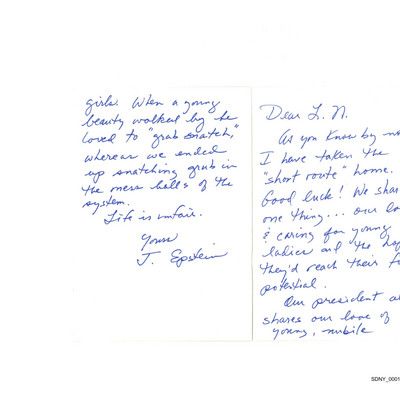 Dear L. N.
As you know by n
I have taken the
"short route" home.
Good luck! We shar
one thing... our lo
& caring for young
ladies and the hop
they'd reach their f
potential.
Our president a
shares our love of
young, nubile
girls. When a young
beauty walked by he
loved to "grab snatch,"
whereas we ended
up snatching grub in
the mess halls of the
system.
Life is unfair.
Yours
J. Epstein
SDNY_0001